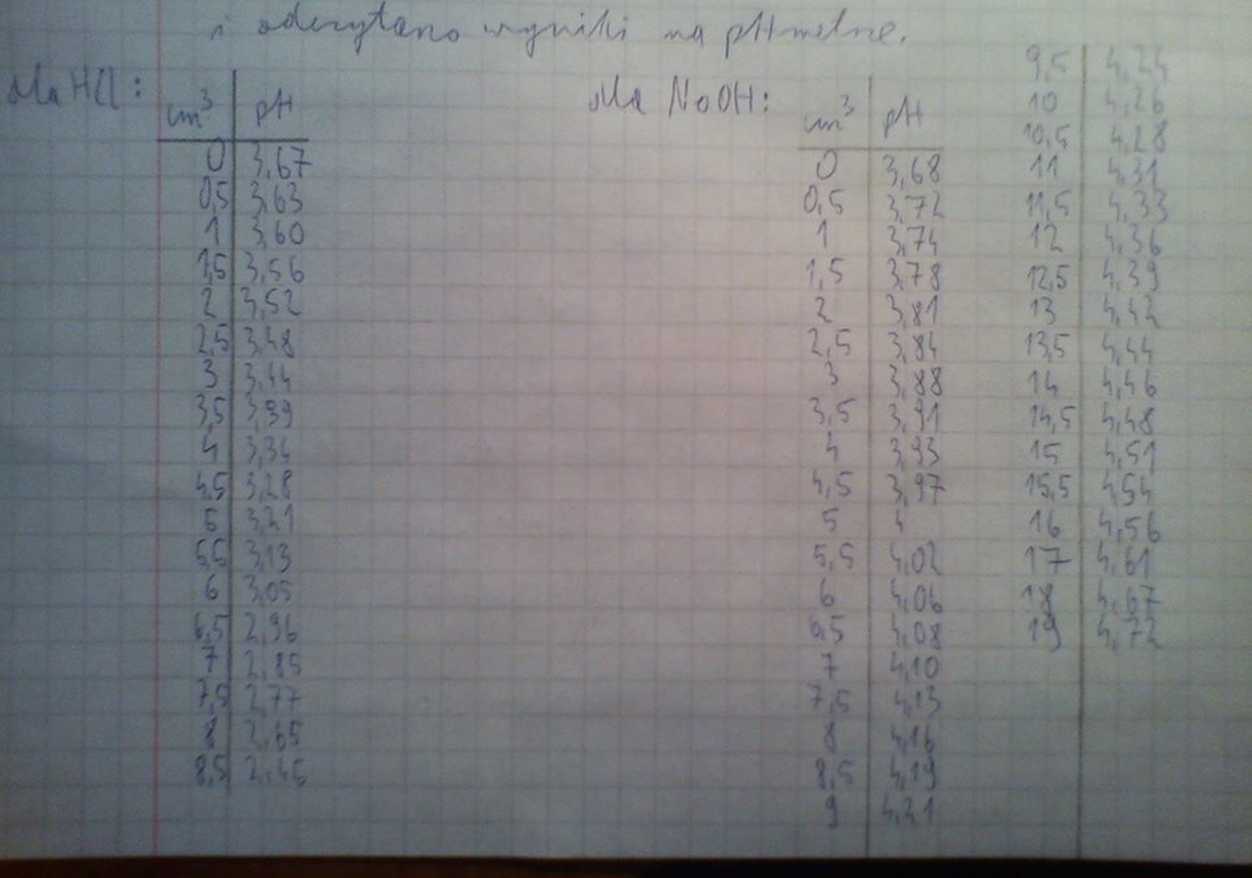 i odczytano wyniki na pHmetrze.
dla HCl:
cm³ pH
0 3,67
0,5 3,63
1 3,60
1,5 3,56
2 3,52
2,5 3,48
3 3,44
3,5 3,39
4 3,34
4,5 3,28
5 3,21
5,5 3,13
6 3,05
6,5 2,96
7 2,85
7,5 2,77
8 2,65
8,5 2,45
dla NaOH:
cm³ pH
0 3,68
0,5 3,72
1 3,74
1,5 3,78
2 3,81
2,5 3,84
3 3,88
3,5 3,91
4 3,93
4,5 3,97
5 4
5,5 4,02
6 4,06
6,5 4,08
7 4,10
7,5 4,13
8 4,16
8,5 4,19
9 4,21
9,5 4,24
10 4,26
10,5 4,28
11 4,31
11,5 4,33
12 4,36
12,5 4,39
13 4,42
13,5 4,44
14 4,46
14,5 4,48
15 4,51
15,5 4,54
16 4,56
17 4,61
18 4,67
19 4,72